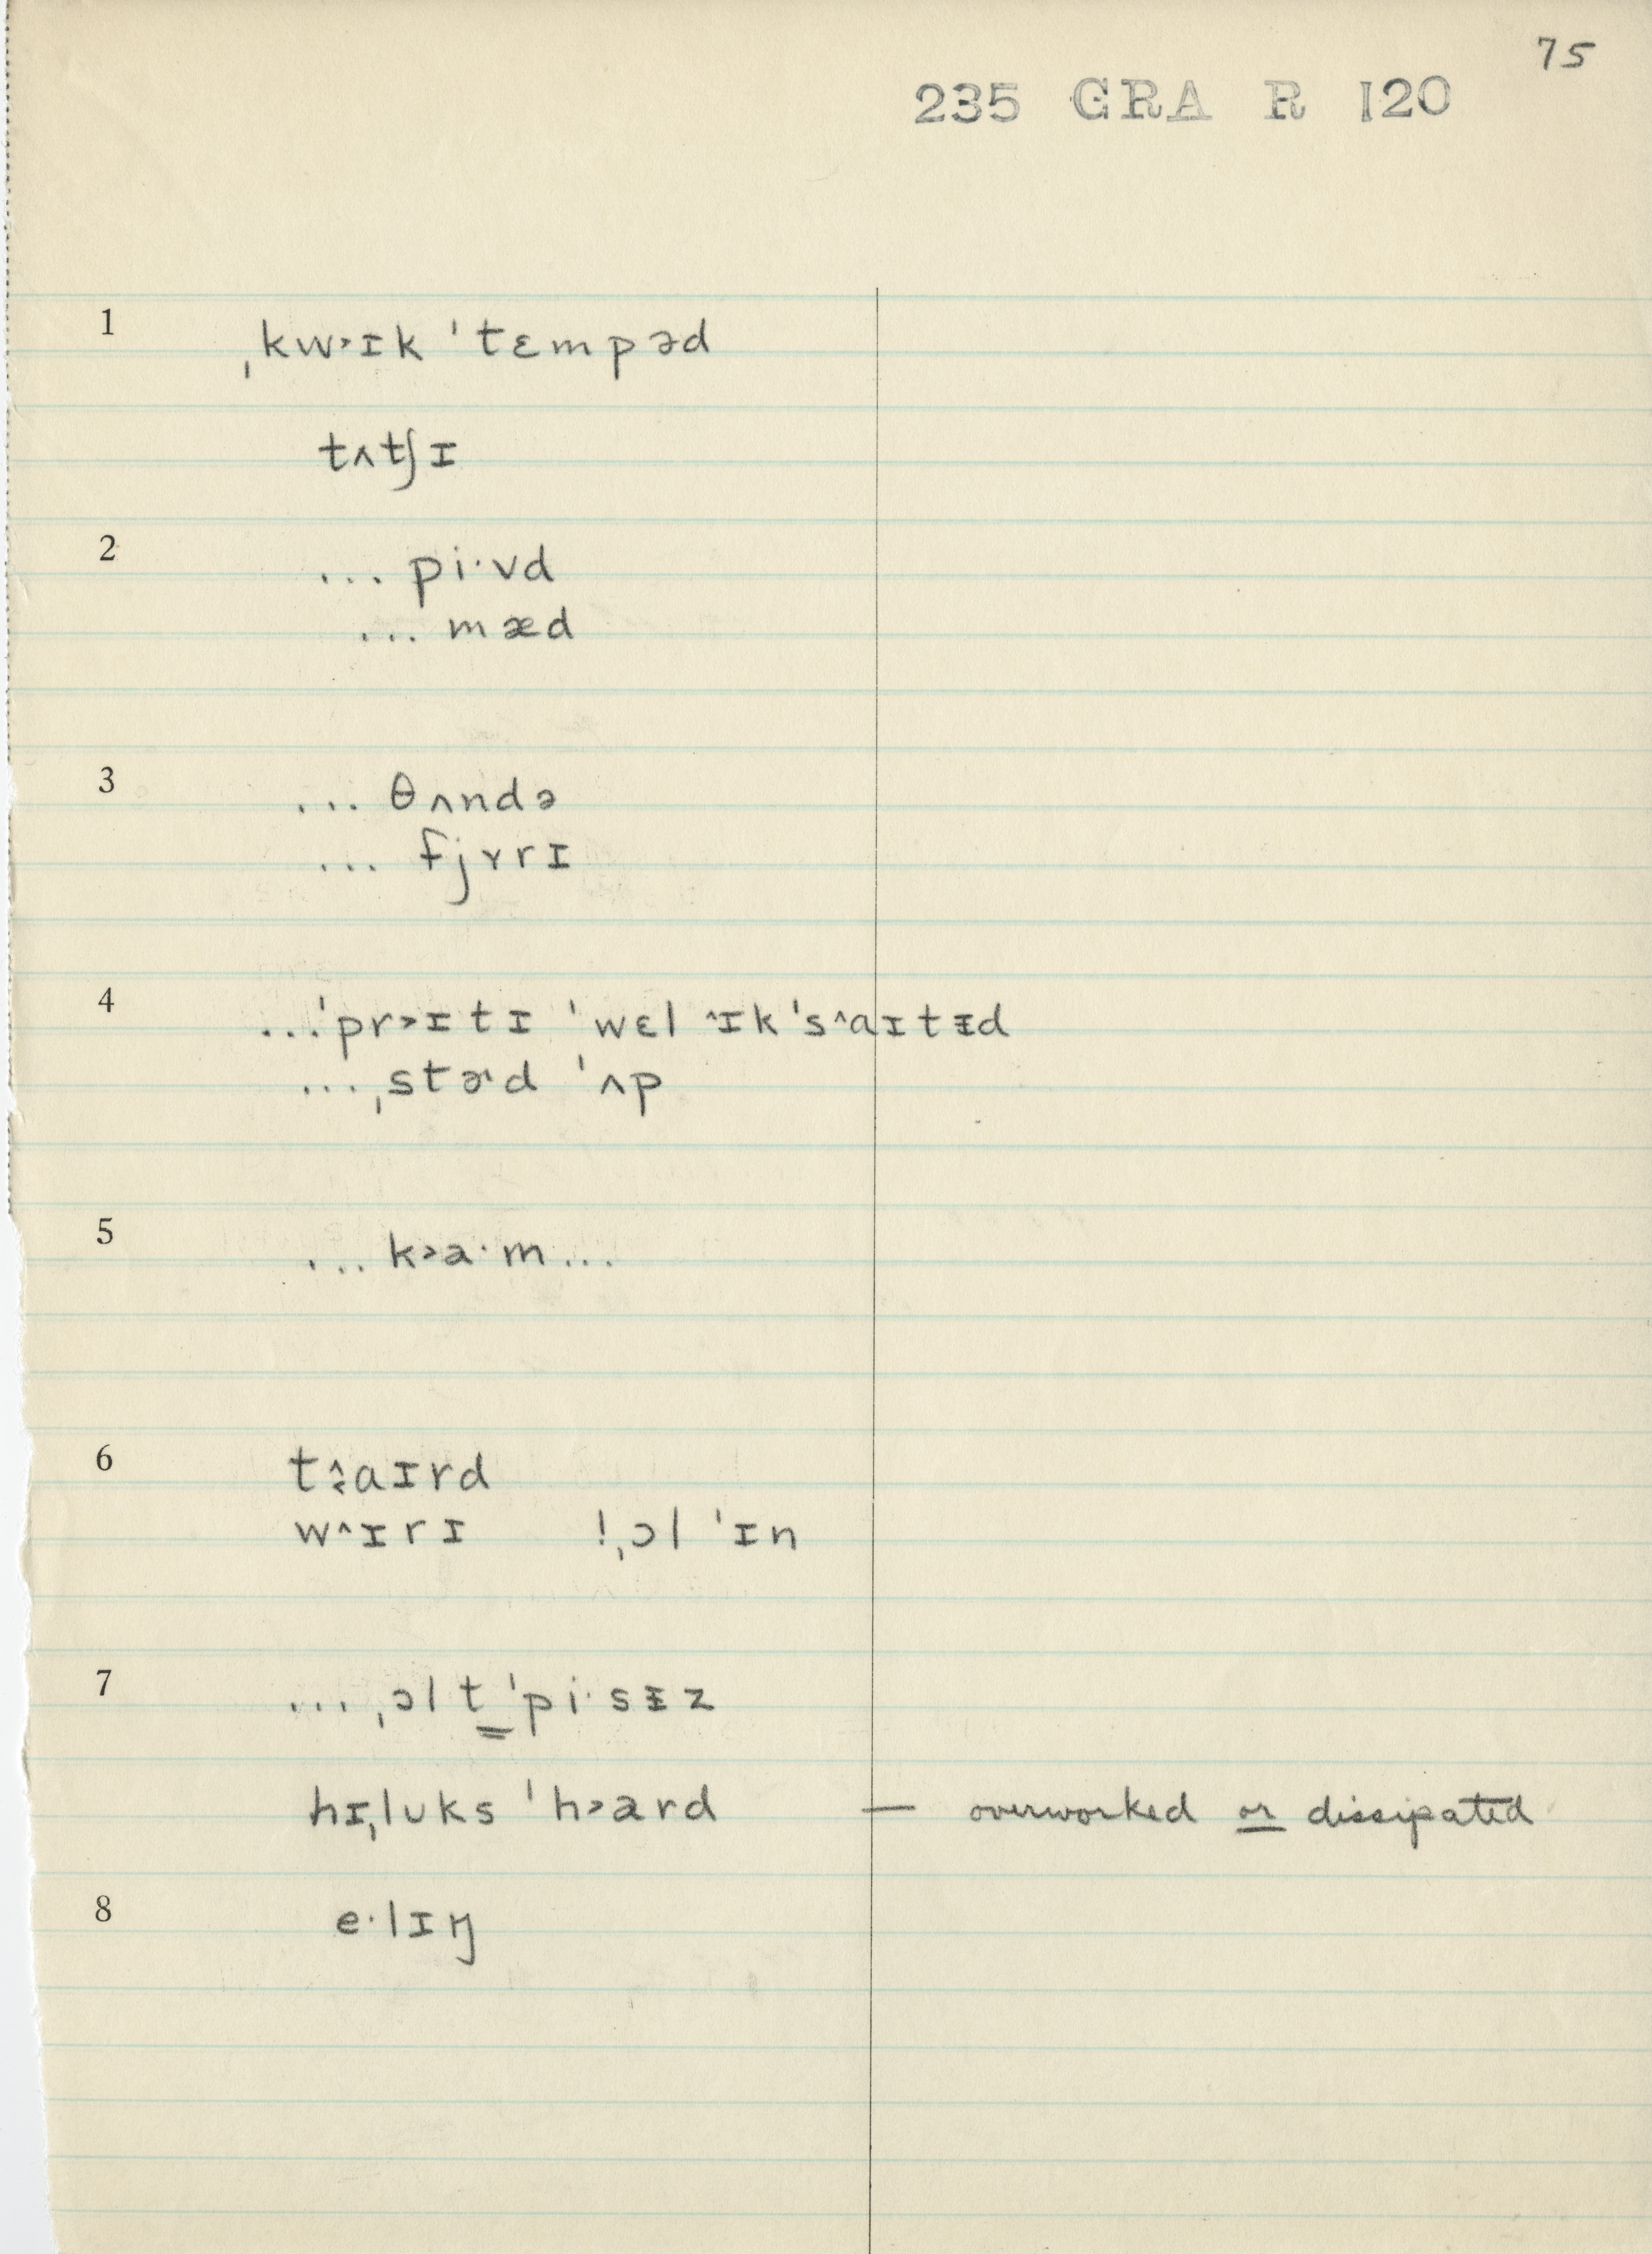 75
235 GRA R 120
1 ˌkw˃ɪk ˈtɛmpəd
tʌtʃɪ
2 ... pi·vd
... mæd
3 ... θʌndə
... fjʏrɪ
4 ...ˈpr˃ɪtɪ ˈwɛl ˄ɪkˈs˄aɪtᵻd
...ˌstɚd ˈʌp
5 ... k˃a·m...
6 t˄aɪrd
w˄ɪrɪ !ˌɔl ˈɪn
7 ...ˌɔl t͇ ˈpi·sᵻz
hɪˌlʊks ˈh˃ard — overworked or dissipated
8 e·lɪŋ